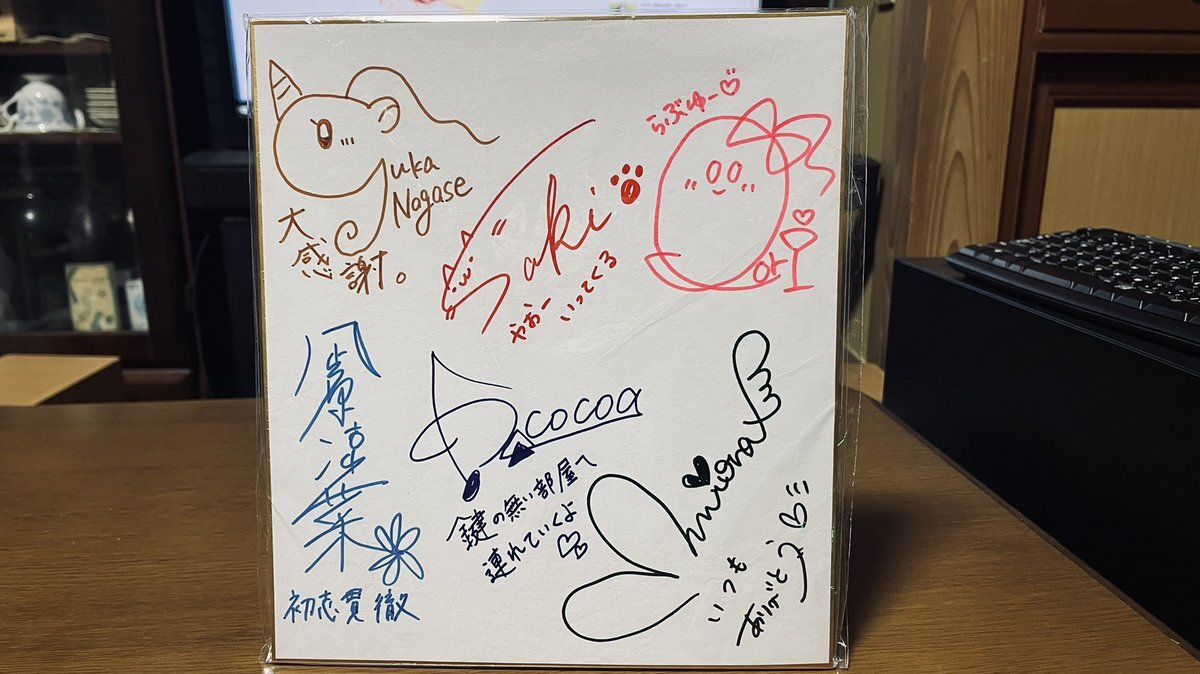 Yuka
Nagase
大
感
謝。
Saki
やおー
いってくる
らぶゆー♡
風原涼葉
初志貫徹
cocoa
鍵の無い部屋へ
連れていくよ
いつも
ありがとう♡